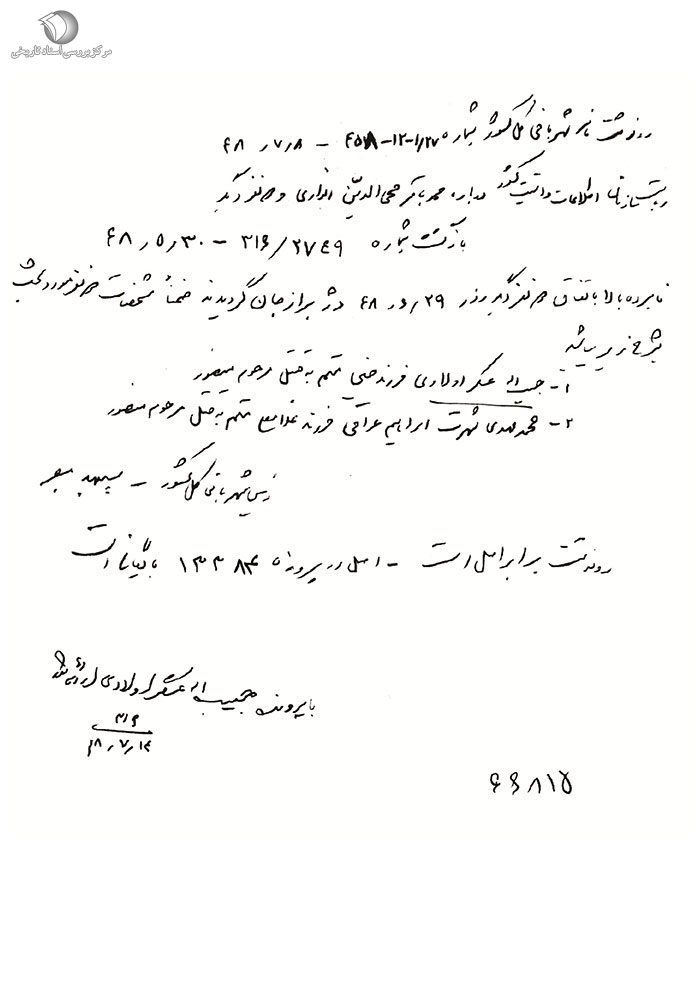 مرکز بررسی اسناد تاریخی
رونوشت نامه شهربانی کل کشور شماره ۴۵۷۸-۱۲-۱/۲۷ - ۴۸٫۷٫۸
ریاست سازمان اطلاعات و امنیت کشور درباره محمدباقر محی‌الدین انواری و ۲ نفر دیگر
بازگشت شماره ۳۱۶/۲۷۴۹ - ۴۸٫۵٫۳۰
نامبرده بالا باتفاق ۲ نفر دیگر روز ۴۸٫۵٫۲۹ از برازجان گردیدند ضمناً مشخصات ۲ نفر مورد بحث
بشرح زیر میباشد
۱- حبیب اله عسکر اولادی فرزند حسین متهم به قتل مرحوم منصور
۲- محمدمهدی شهرت ابراهیم عراقی فرزند غلامعلی متهم به قتل مرحوم منصور
رئیس شهربانی کل کشور - سپهبد مبصر
رونوشت برابر اصل است - اصل در پرونده ۱۳۳۸۴ بایگانی است
با پرونده حبیب اله عسگر اولادی
۳۱۶
۴۸٫۷٫۱۴
۶۶۸۱۵